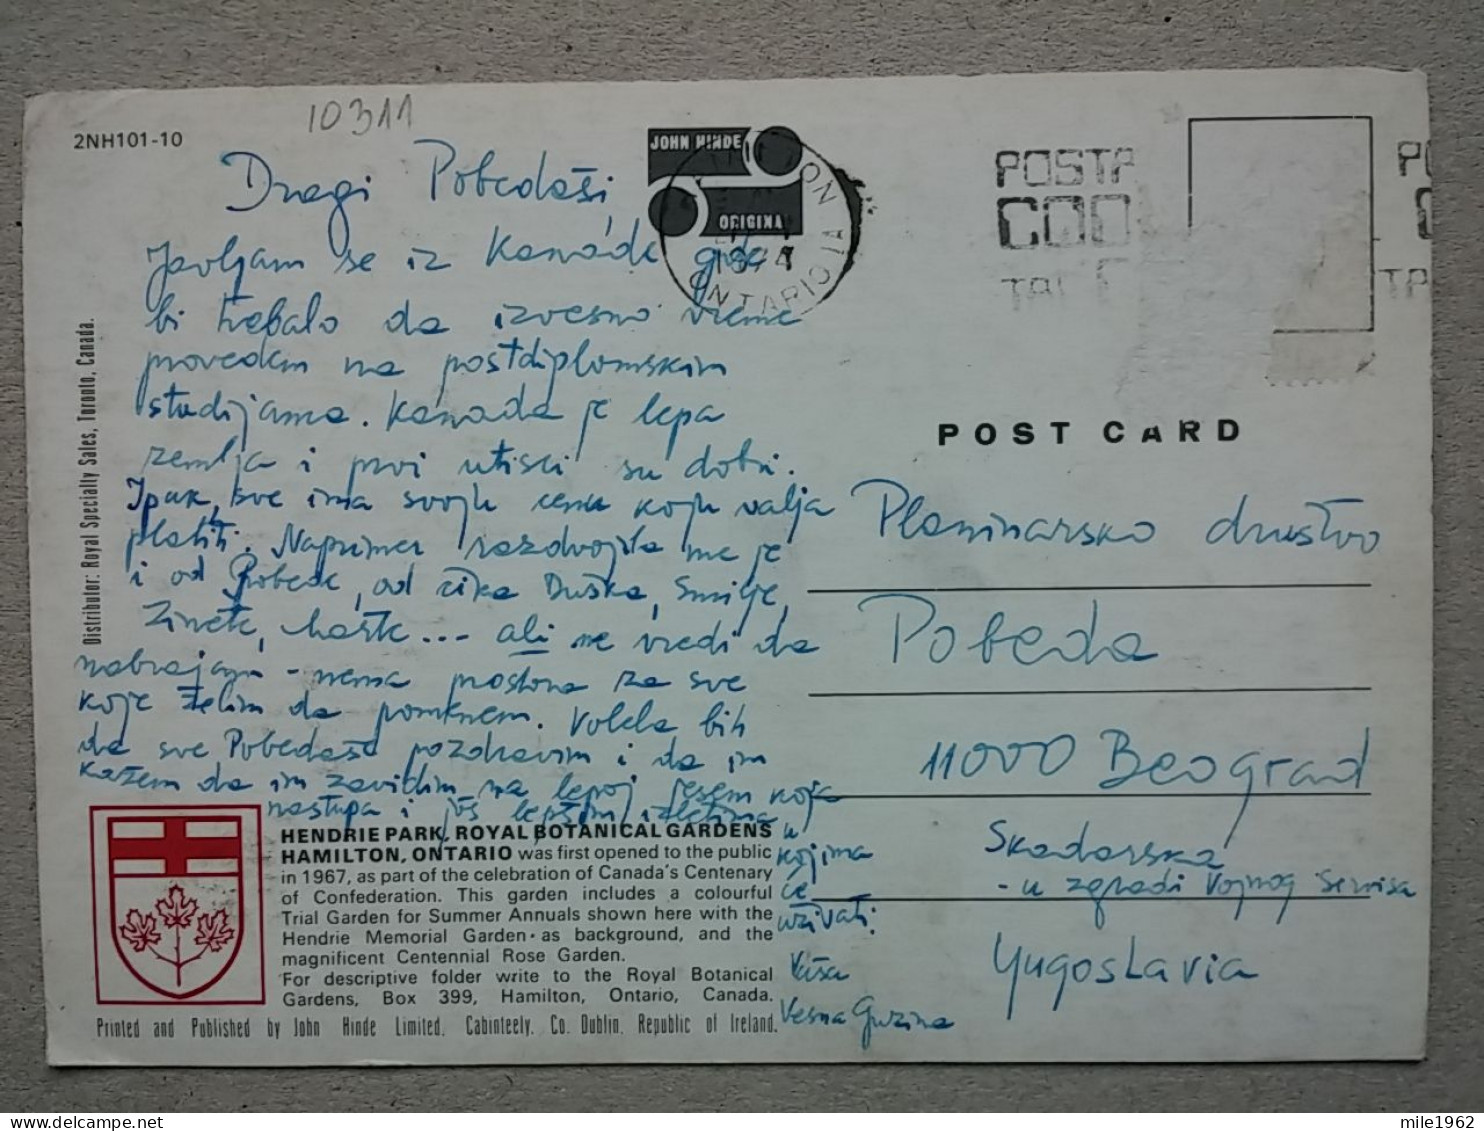 10311
2NH101-10
JOHN HINDE
ORIGINAL
HAMILTON
1974
ONTARIO
POSTA
COD
Dragi Pobedaši,
Javljam se iz Kanade gde
bi trebalo da izvesno vreme
provedem na postdiplomskim
studijama. Kanada je lepa
zemlja i prvi utisci su dobri.
Ipak, sve ima svoju cenu koju valja
platiti. Naprimer razdvojila me je
i od Pobede, od čika Duška, Smilje,
Zinete, ... ali ne vredi da
nabrajam - nema prostora za sve
koje želim da pomenem. Volela bih
da sve Pobedaše pozdravim i da im
kažem da im zavidim na lepoj jesen koja
nastupa i još lepšim izletima
u
kojima
će
uživati.
Vaša
Vesna Guzina
POST CARD
Planinarsko društvo
Pobeda
11000 Beograd
Skadarska
- u zgradi Vojnog servisa
Yugoslavia
Distributor: Royal Specialty Sales, Toronto, Canada.
HENDRIE PARK, ROYAL BOTANICAL GARDENS
HAMILTON, ONTARIO was first opened to the public
in 1967, as part of the celebration of Canada's Centenary
of Confederation. This garden includes a colourful
Trial Garden for Summer Annuals shown here with the
Hendrie Memorial Garden as background, and the
magnificent Centennial Rose Garden.
For descriptive folder write to the Royal Botanical
Gardens, Box 399, Hamilton, Ontario, Canada.
Printed and Published by John Hinde Limited, Cabinteely, Co. Dublin, Republic of Ireland.
mile1962